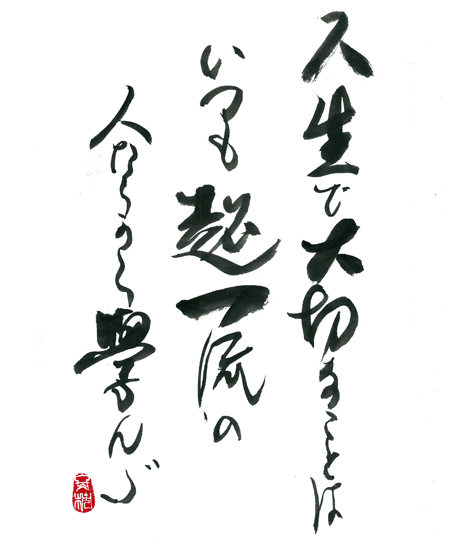 人生で大切なことは
いつも超一流の
人たちから學んだ